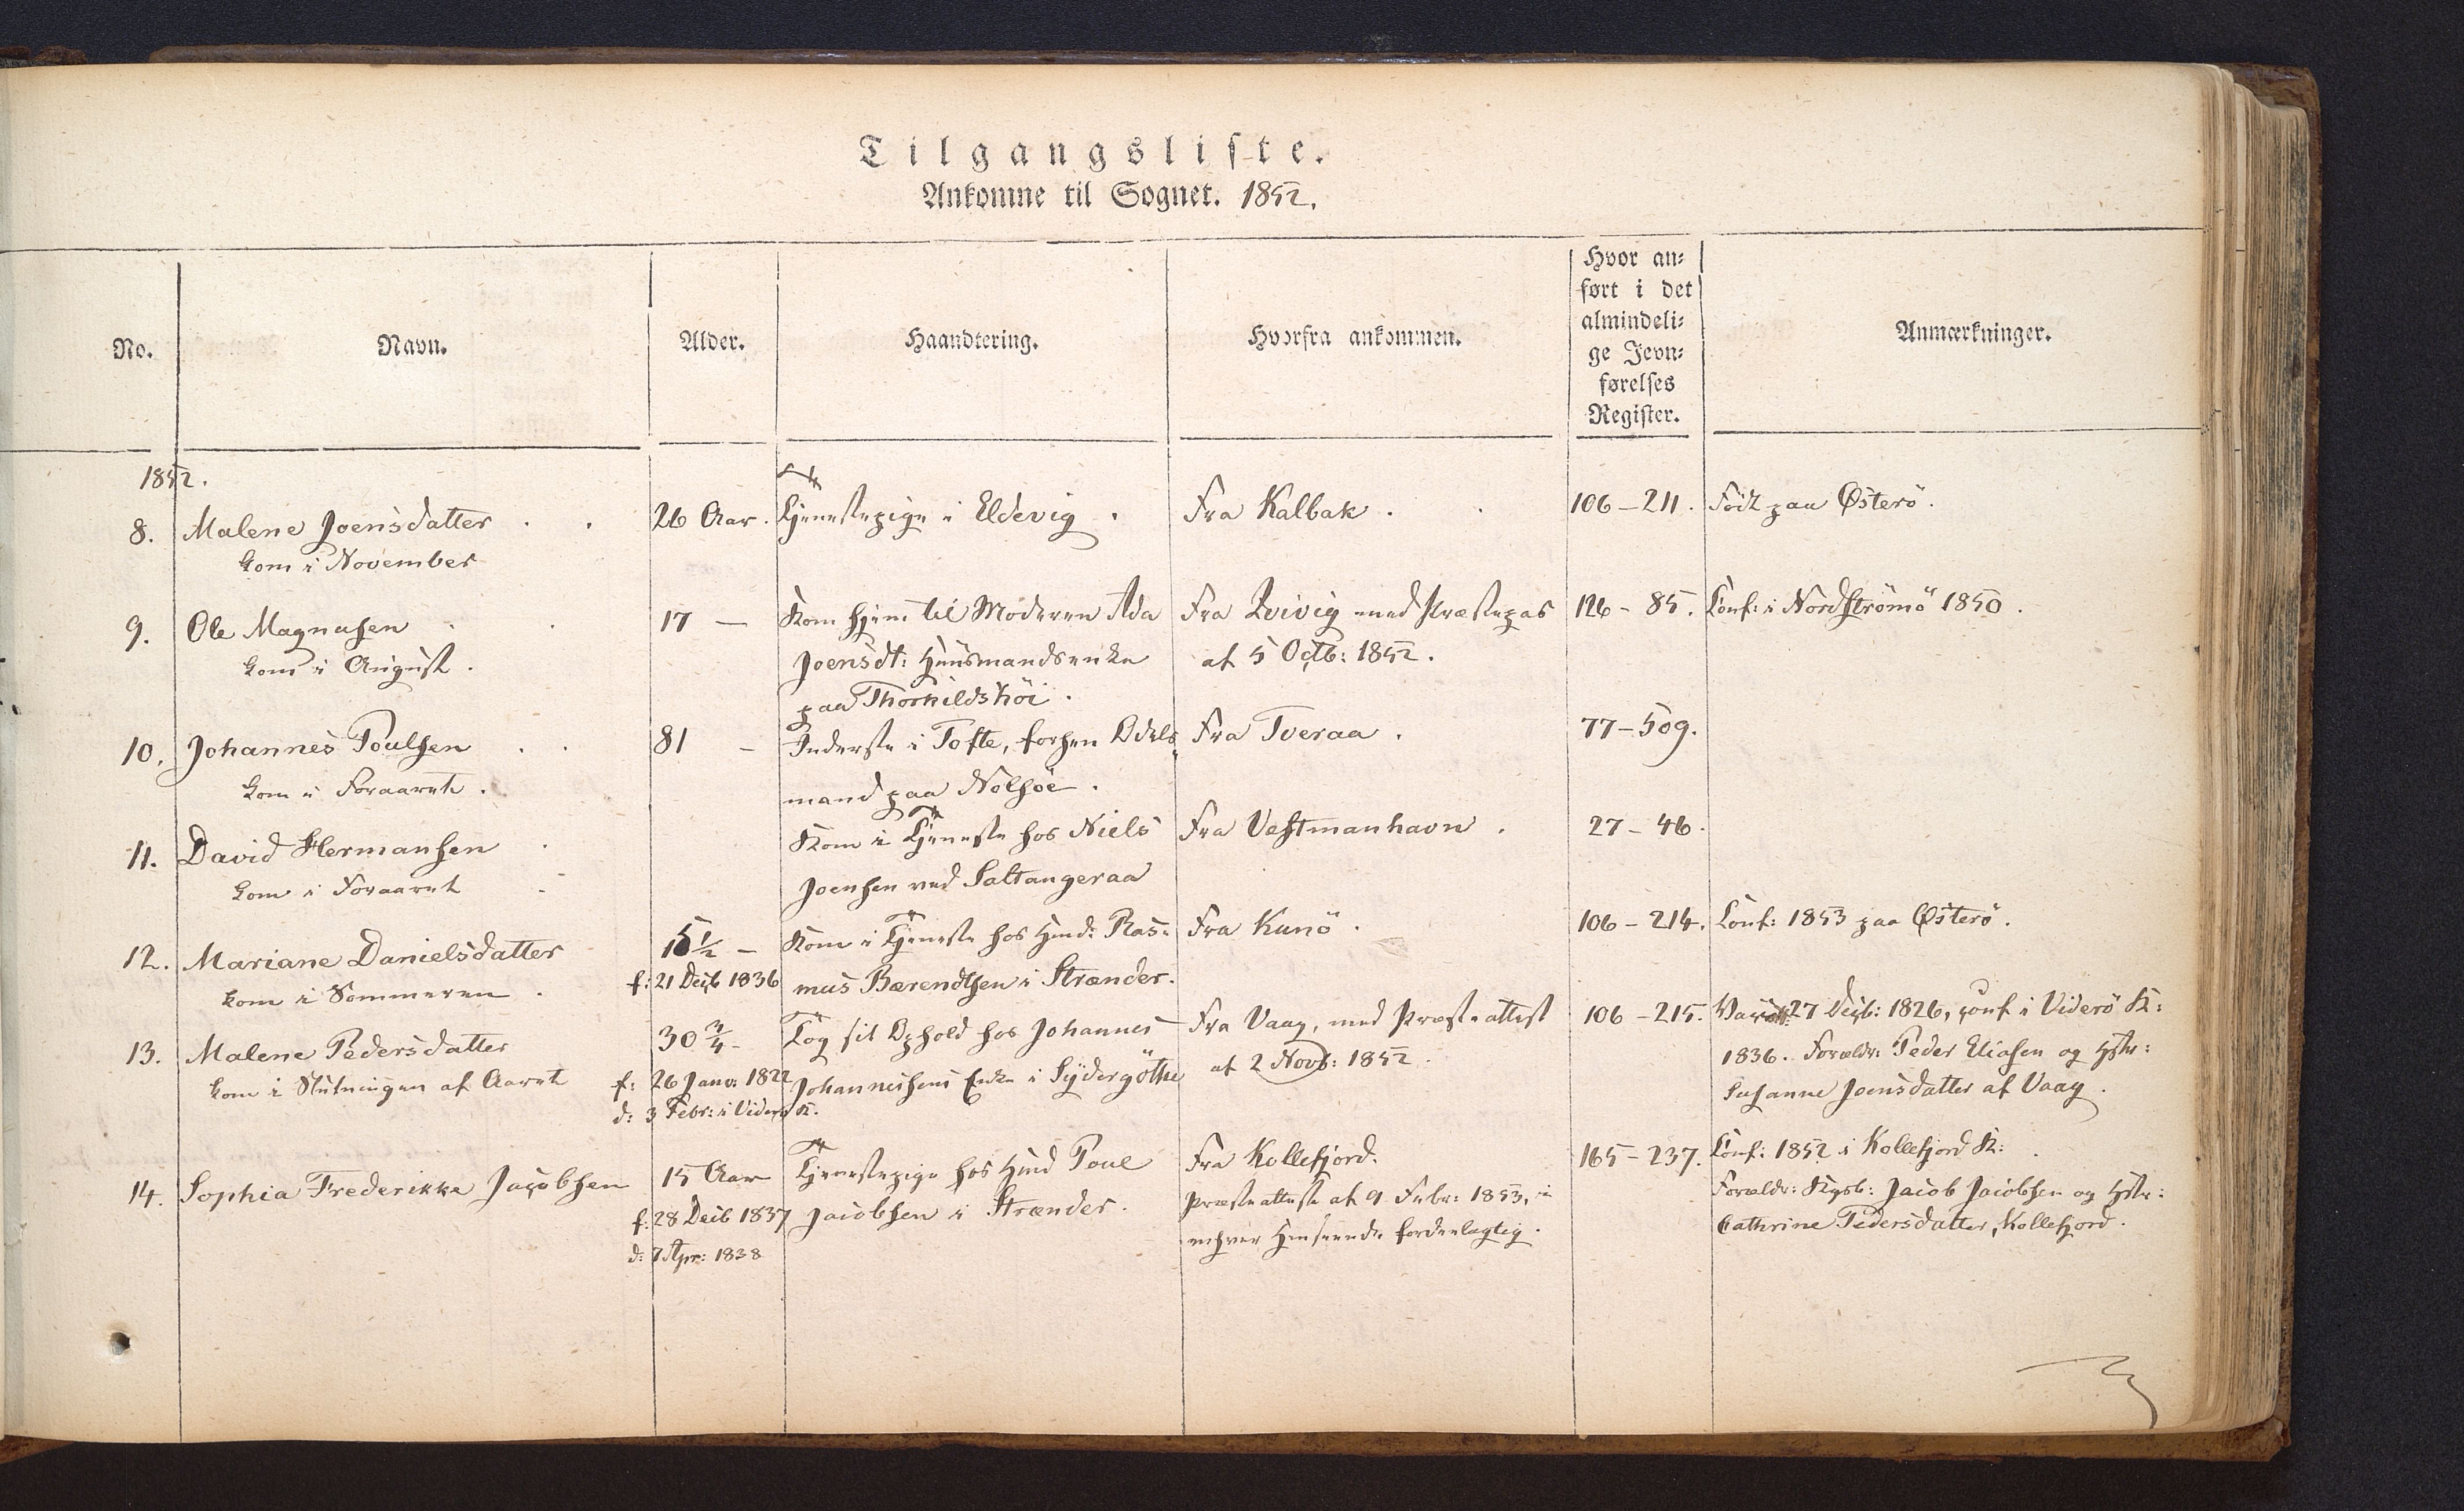 Tilgangsliste.
Ankomne til Sognet. 1852.
No.
Navn.
Alder.
Haandtering.
Hvorfra ankommen.
Hvor an-
ført i det
almindeli-
ge Jevn-
førelses
Register.
Anmærkninger.
1852.
8. Malene Joensdatter
kom i November
26 Aar.
Tjenestepige i Eldevig.
Fra Kalbak.
106-211.
Født paa Østerö.
9. Ole Magnusen
kom i August.
17 —
Kom hjem til Moderen Ada
Joensdt: Huusmandsenke
paa Thorkildshöi.
Fra Qvivig med Præstepas
af 5 Octb: 1852.
126-85.
Conf: i Nordströmö 1850.
10. Johannes Poulsen
kom i Foraaret.
81 —
Inderste i Tofte, forhen Odels
mand paa Nolsöe.
Fra Tveraa.
77-509.
11. David Hermansen
kom i Foraaret
Kom i Tjeneste hos Niels
Joensen ved Saltangeraa
Fra Vestmanhavn.
27-46.
12. Mariane Danielsdatter
kom i Sommeren.
15 1/2 —
f: 21 Decb 1836
Kom i Tjeneste hos Hmd: Ras-
mus Bærendtsen i Strænder.
Fra Kunö.
106-214.
Conf: 1853 paa Østerö.
13. Malene Pedersdatter
kom i Slutningen af Aaret
30 3/4 -
f: 26 Janv: 1822
d: 3 Febr: i Viderö K.
Tog sit Ophold hos Johannes
Johannesens Enke i Sydergöthe
Fra Vaag, med Præsteattest
af 2 Novb: 1852.
106-215.
27 Decb: 1826, conf i Viderö K:
1836. Forældr: Peder Eliasen og Hstr:
Susanne Joensdatter af Vaag.
14. Sophia Frederikke Jacobsen
15 Aar
f: 28 Decb 1837
d: 7 Apr: 1838
Tjenestepige hos Hmd Poul
Jacobsen i Strænder.
Fra Kollefjord.
Præsteatteste af 9 Febr: 1853, i
enhver Henseende fordeelagtig.
165-237.
Conf: 1852 i Kollefjord K:
Forældr: Kgsb: Jacob Jacobsen og Hstr:
Cathrine Pedersdatter, Kollefjord.